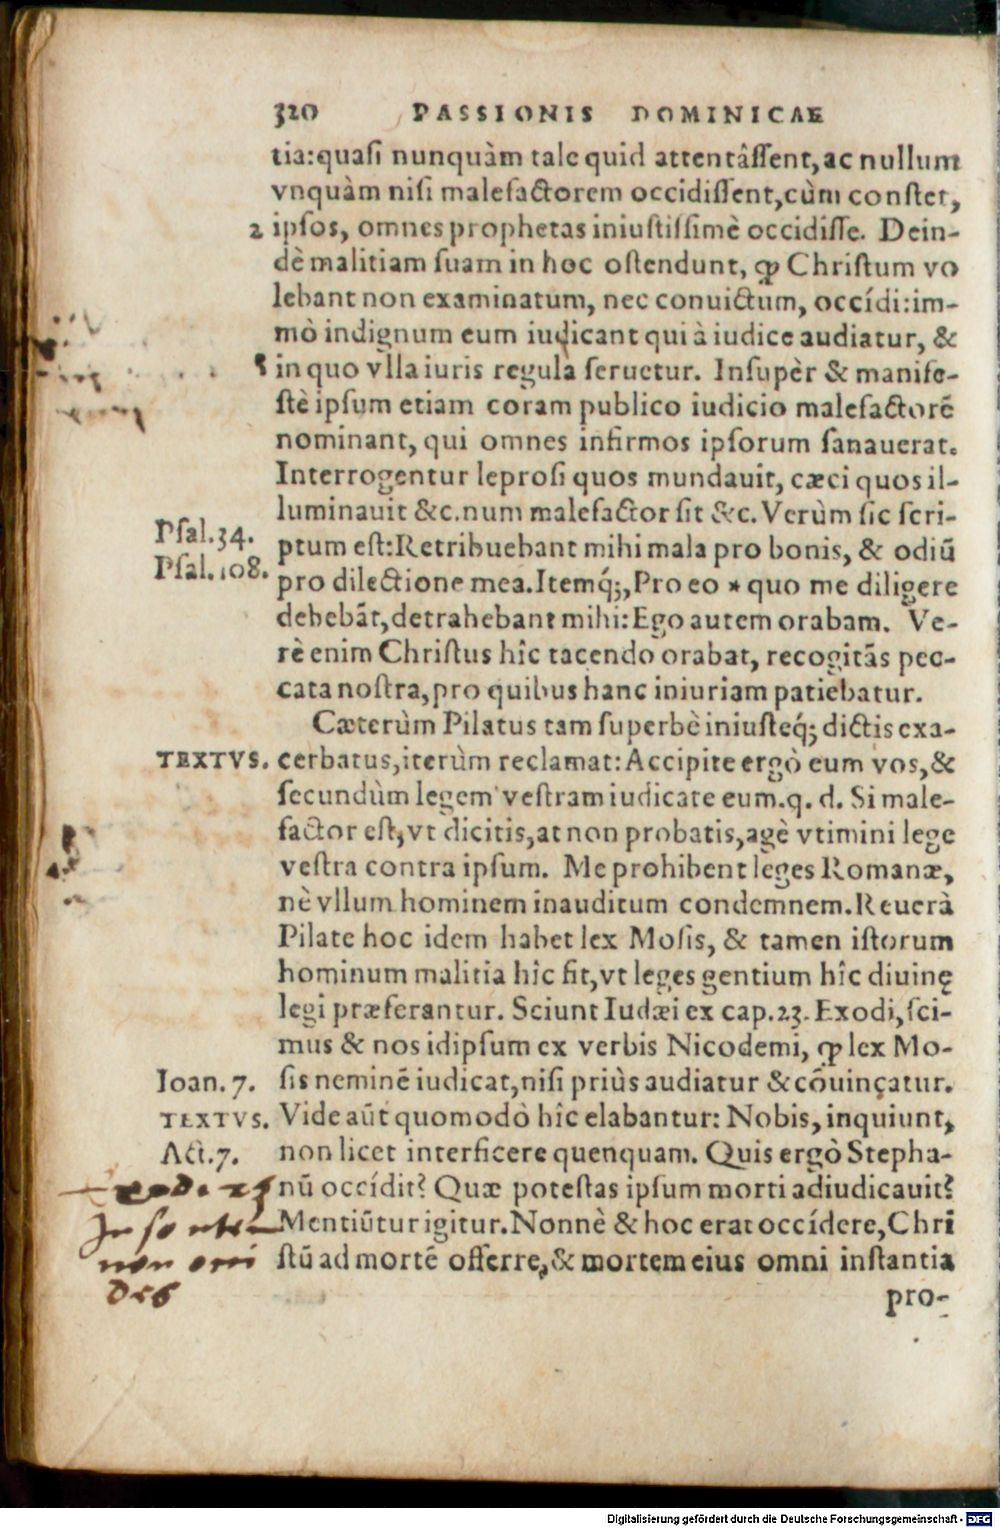 320 PASSIONIS DOMINICAE
tia:quasi nunquàm tale quid attentâssent,ac nullum
vnquàm nisi malefactorem occidissent,cùm constet,
2 ipsos, omnes prophetas iniustissimè occidisse. Dein-
dè malitiam suam in hoc ostendunt, ꝙ Christum vo
lebant non examinatum, nec conuictum, occídi:im-
mò indignum eum iudicant qui à iudice audiatur, &
in quo vlla iuris regula seruetur. Insupèr & manife-
stè ipsum etiam coram publico iudicio malefactorē
nominant, qui omnes infirmos ipsorum sanauerat.
Interrogentur leprosi quos mundauit, cæci quos il-
luminauit &c.num malefactor sit &c. Verùm sic scri-
Psal.34. ptum est:Retribuebant mihi mala pro bonis, & odiū
Psal.108. pro dilectione mea.Itemq́;,Pro eo * quo me diligere
debebāt,detrahebant mihi:Ego autem orabam. Ve-
rè enim Christus hîc tacendo orabat, recogitās pec-
cata nostra,pro quibus hanc iniuriam patiebatur.
Cæterùm Pilatus tam superbè iniusteq́; dictis exa-
TEXTVS. cerbatus,iterùm reclamat:Accipite ergò eum vos,&
secundùm legem vestram iudicate eum.q. d. Si male-
factor est,vt dicitis,at non probatis,agè vtimini lege
vestra contra ipsum. Me prohibent leges Romanæ,
nè vllum hominem inauditum condemnem.Reuerà
Pilate hoc idem habet lex Mosis, & tamen istorum
hominum malitia hîc fit,vt leges gentium hîc diuinę
legi præferantur. Sciunt Iudæi ex cap.23. Exodi,sci-
mus & nos idipsum ex verbis Nicodemi, ꝙ lex Mo-
Ioan.7. sis neminē iudicat,nisi priùs audiatur & cōuinçatur.
TEXTVS. Vide aūt quomodò hîc elabantur: Nobis, inquiunt,
Act.7. non licet interficere quenquam. Quis ergò Stepha-
exodi. 23 nū occídit? Quæ potestas ipsum morti adiudicauit?
Mentiūtur igitur.Nonnè & hoc erat occídere,Chri
non occi stū ad mortē offerre,& mortem eius omni instantia
des
pro-
Digitalisierung gefördert durch die Deutsche Forschungsgemeinschaft - DFG